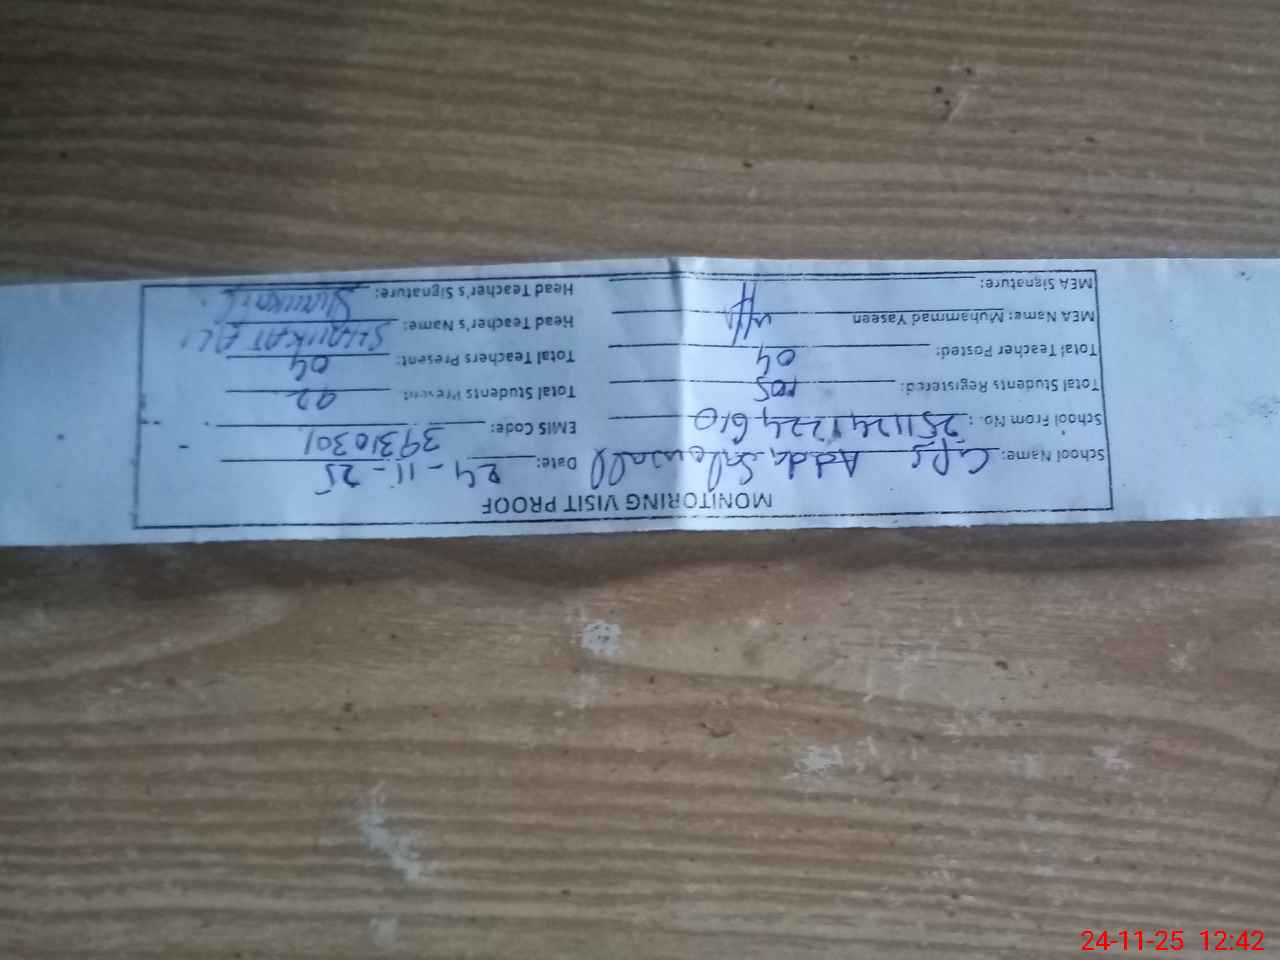 MONITORING VISIT PROOF
School Name: GPS Adda Salowall Date: 24-11-25
School From No.: 2511241224610 EMIS Code: 39310301
Total Students Registered: 105 Total Students Present: 92
Total Teacher Posted: 04 Total Teachers Present: 04
MEA Name: Muhammad Yaseen Head Teacher's Name: SHAUKAT ALI
MEA Signature: Head Teacher's Signature:
24-11-25 12:42